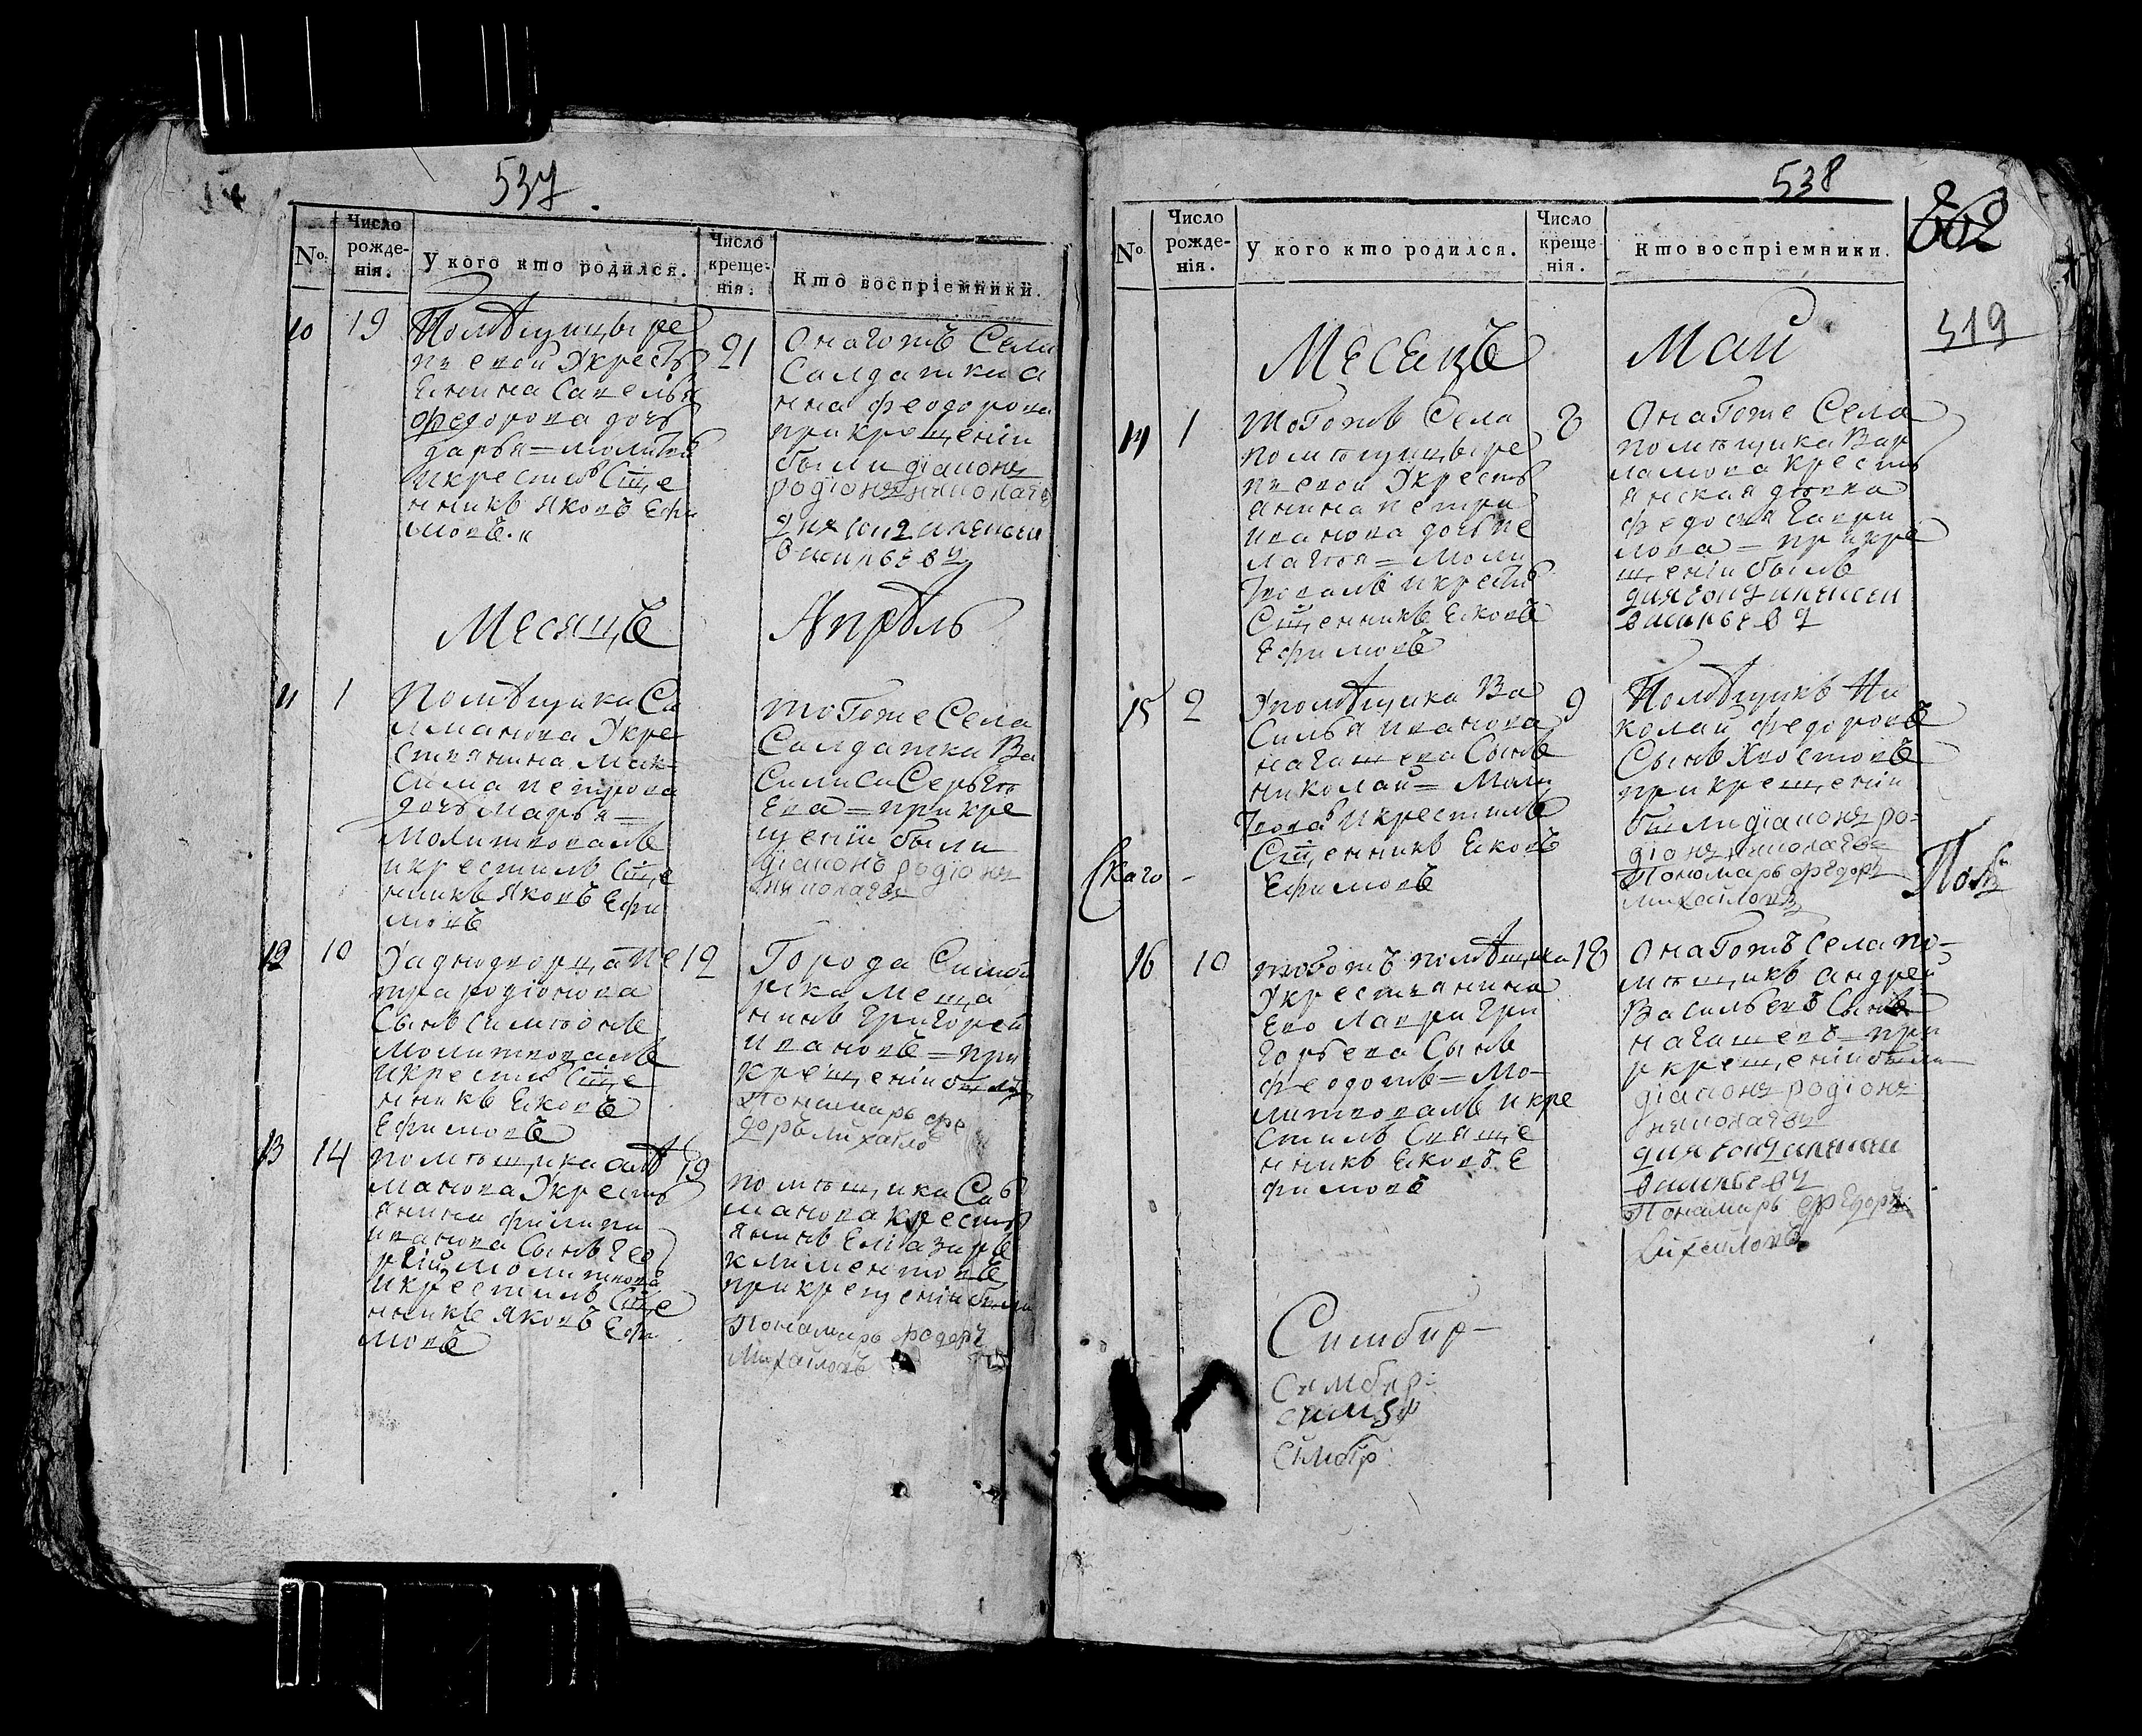 537.
№
Число рожде-нія.
У кого кто родился.
Число креще-нія.
Кто воспріемники.
10
19
Помѣщицы ре
пьевой Укресть
Енина Савельа
федорова дочь
дарья = молитв
икрестилъ Сще
нникъ Яковъ Ефи
мовъ.
21
Онаготъ Села
Салдатка а
нна феодорова
при крещеніи
были діаконъ
родіонъ николаевъ
дьячокъ алексѣй
васильевъ
Месяцъ
Апрѣль
11
1
Помѣщика Са
лманова Укре
стьянина Мак
сима петрова
дочь марья =
Молитвовалъ
икрестилъ Сще
нникъ Яковъ Ефи
мовъ
тогоже Села
Салдатка Ва
силиса Сергѣ
Ева = при кре
щеніи были
діаконъ родіонъ
николаевъ
12
10
Уаднодворца пе
тра родіонова
Сынъ симіонъ
молитвовалъ
икрестилъ Сще
нникъ Ековъ
Ефимовъ
12
Города Симби
рска меща
нинъ григорей
ивановъ = при
крещеніи былъ
Пономарь фе
доръ михайло
13
14
помѣщика
манова Укресть
янина филипа
иванова Сынъ гео
ргій молитвова
икрестилъ Сще
нникъ Яковъ Ефи
мовъ
19
помѣщика Сал
манова кресть
янинъ Елиазаръ
климентовъ
при крещеніи были
Пономарь федоръ
Михайловъ
538
862
319
№
Число рожде-нія.
У кого кто родился.
Число креще-нія.
Кто воспріемники.
Месецъ
Маи
14
1
Тоготъ Села
помѣщицы ре
пьевои Укресть
янина петра
иванова дочь пе
лагѣя = Моли
твовалъ икрестил
Сщенникъ Ековъ
Ефимовъ
8
Онагоже Села
помѣщика Вар
ламова кресть
янская дѣвка
федосья гаври
лова = при кре
щеніи былъ
дьячокъ алексѣй
васильевъ
15
2
Упомѣщика Ва
силья иванова
нагаткева Сынъ
николай = Моли
твовалъ икрестилъ
Сщенникъ Ековъ
Ефимовъ
9
Помѣщикъ Ни
колай федоровъ
Сынъ Хвостовъ
при крещеніи
были діаконъ ро=
діонъ николаевъ
Пономарь федоръ
михайловъ
Скаго -
16
10
тоготъ помѣщика
Укрестьянина
Ево лаври гри
горьева Сынъ
феодотъ = Мо-
литвовалъ икре
стилъ Свяще
нникъ Ековъ Е
фимовъ
18
Онаготъ села по-
мѣщикъ андрей
Васильевъ Сынъ
нагаткевъ = при
крещеніи были
діаконъ родіонъ
николаевъ
дьячокъ алексѣй
васильевъ
Пономарь федоръ
михайловъ
Симбир-
Симбир:
симби
симбр: